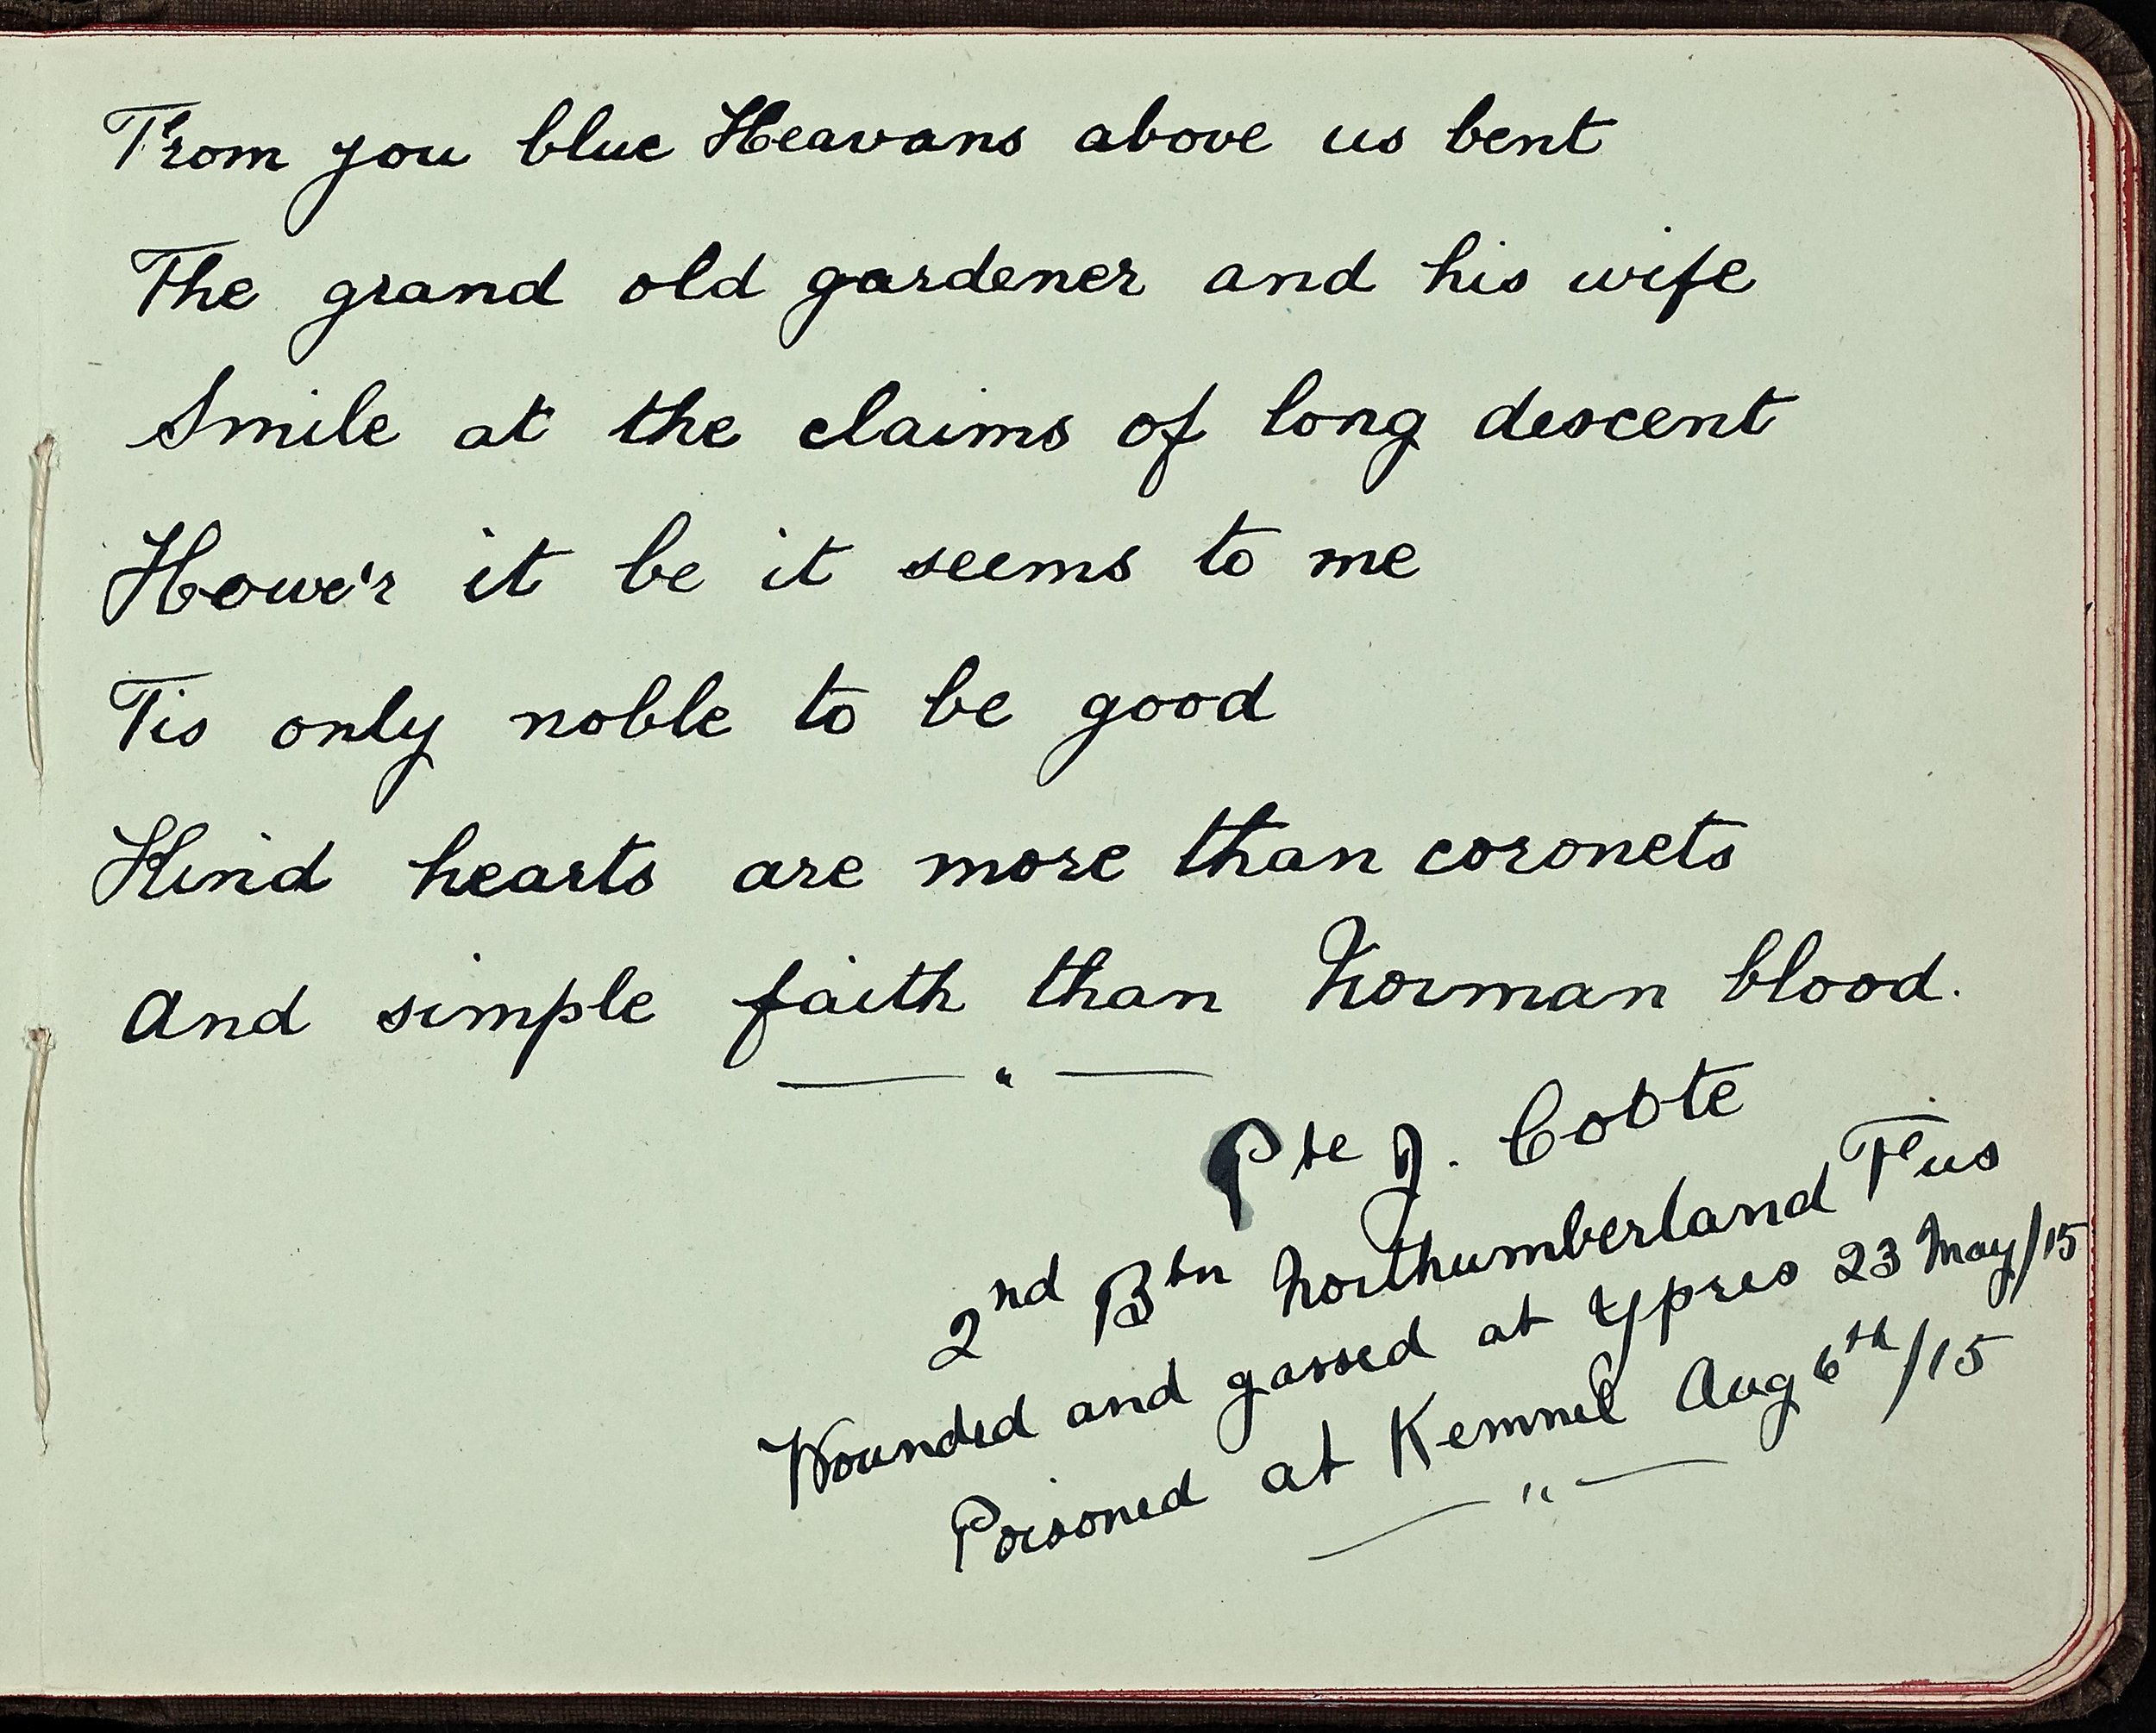 From you blue Heavans above us bent
The grand old gardener and his wife
Smile at the claims of long descent
Howe'r it be it seems to me
Tis only noble to be good
Kind hearts are more than coronets
And simple faith than Norman blood.
Pte J. Cobte
2nd Btn Northumberland Fus
Wounded and gassed at Ypres 23 May/15
Poisoned at Kemmel Aug 6th/15